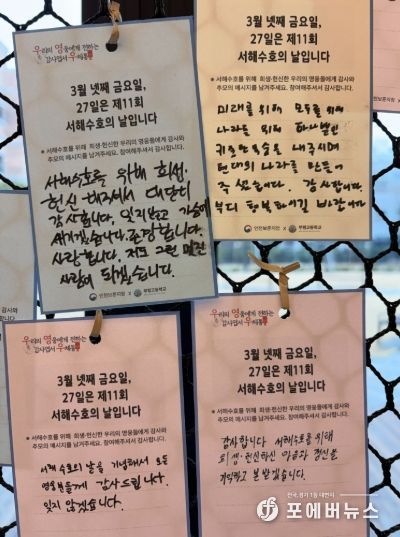 우리의 영웅에게 전하는
감사엽서 우체통
3월 넷째 금요일,
27일은 제11회
서해수호의 날입니다
* 서해수호를 위해 희생·헌신한 우리의 영웅들에게 감사와
추모의 메시지를 남겨주세요. 참여해주셔서 감사합니다.
서해수호를 위해 희생,
헌신 해주셔서 대단히
감사합니다. 잊지않고 가슴에
새기겠습니다. 존경합니다.
사랑합니다. 저도 그런 멋진
사람이 되겠습니다.
인천보훈지청 x 부평고등학교
3월 넷째 금요일,
27일은 제11회
서해수호의 날입니다
* 서해수호를 위해 희생·헌신한 우리의 영웅들에게 감사와
추모의 메시지를 남겨주세요. 참여해주셔서 감사합니다.
미래를 위해 모두를 위해
나라를 위해 하나뿐인
귀중한 목숨을 내주시며
현대의 나라를 만들어
주셨습니다. 감사합니다.
부디 행복하시길 바랍니다
인천보훈지청 x 부평고등학교
우리의 영웅에게 전하는
감사엽서 우체통
3월 넷째 금요일,
27일은 제11회
서해수호의 날입니다
* 서해수호를 위해 희생·헌신한 우리의 영웅들에게 감사와
추모의 메시지를 남겨주세요. 참여해주셔서 감사합니다.
서해 수호의 날을 기념해서 모든
영웅분들께 감사드립니다.
잊지 않겠습니다.
우리의 영웅에게 전하는
감사엽서 우체통
3월 넷째 금요일,
27일은 제11회
서해수호의 날입니다
* 서해수호를 위해 희생·헌신한 우리의 영웅들에게 감사와
추모의 메시지를 남겨주세요. 참여해주셔서 감사합니다.
감사합니다 서해수호를 위해
희생·헌신하신 마음과 정신을
기억하고 본받겠습니다.
전국, 경기 1등 대변지
포에버뉴스